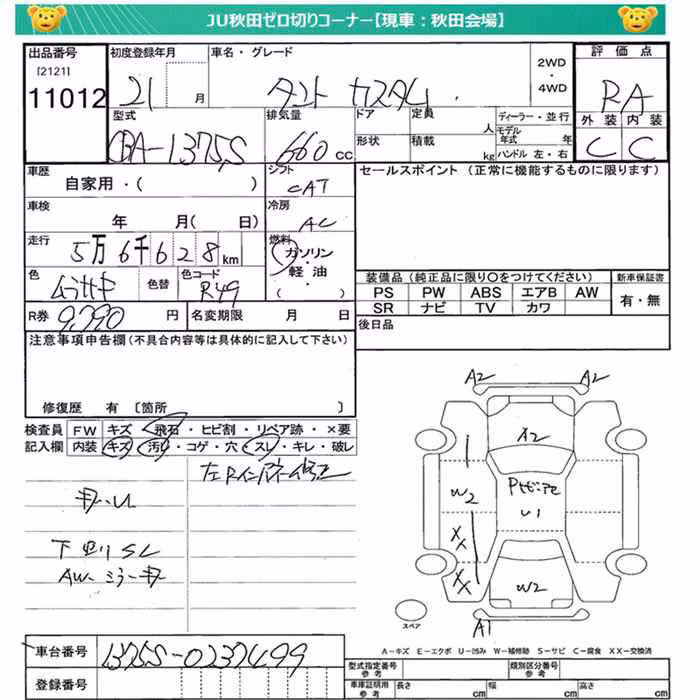 JU秋田ゼロ切りコーナー【現車：秋田会場】
出品番号 初度登録年月 車名・グレード 2WD・4WD 評価点
[2121]
11012 21 月 タント カスタム RA
型式 排気量 ドア 定員 人 ディーラー・並行 外装 内装
CBA-L375S 660cc 形状 積載 kg モデル年式 年 ハンドル 左・右 C C
車歴 シフト セールスポイント（正常に機能するものに限ります）
自家用・（ ） CAT
車検 冷房
年 月（ 日） AC
走行 燃料
5万6千628km ガソリン・軽油・（ ）
色 色替 色コード 装備品（純正品に限り○をつけてください） 新車保証書
ムラサキ R49 PS PW ABS エアB AW 有・無
SR ナビ TV カワ
R券 9,790円 名変期限 月 日 後日品
注意事項申告欄（不具合内容等は具体的に記入して下さい）
修復歴 有〔箇所 〕
検査員記入欄 FW キズ・飛石・ヒビ割・リペア跡・×要
内装 キズ・汚れ・コゲ・穴・スレ・キレ・破レ
下回りSC
AWミラーキ
A2 A2
A2
W2
U1
XX
XX
W2
A1
スペア
A－キズ E－エクボ U－凹み W－補修跡 S－サビ C－腐食 XX－交換済
車台番号 L375S-0237499
登録番号
型式指定番号 参考 類別区分番号 参考
車車証明用 参考 長さ cm 幅 cm 高さ cm